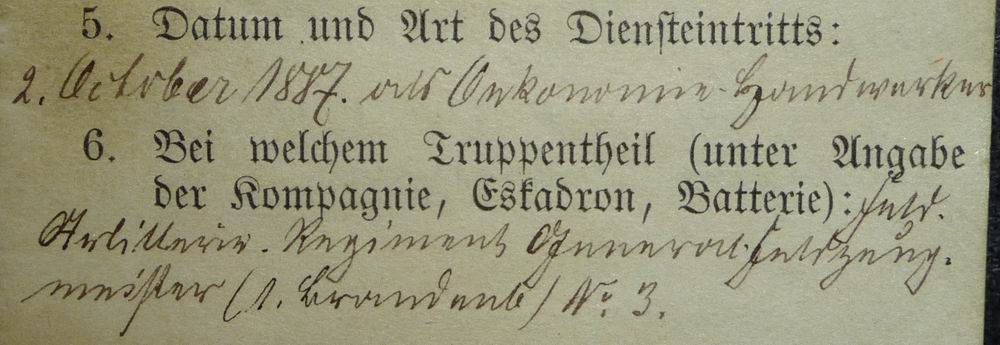 5. Datum und Art des Diensteintritts:
2. October 1887. als Oekonomie-Handwerker
6. Bei welchem Truppentheil (unter Angabe
der Kompagnie, Eskadron, Batterie): Feld-
Artillerie-Regiment General-Feldzeug-
meister (1. Brandenb) No 3.